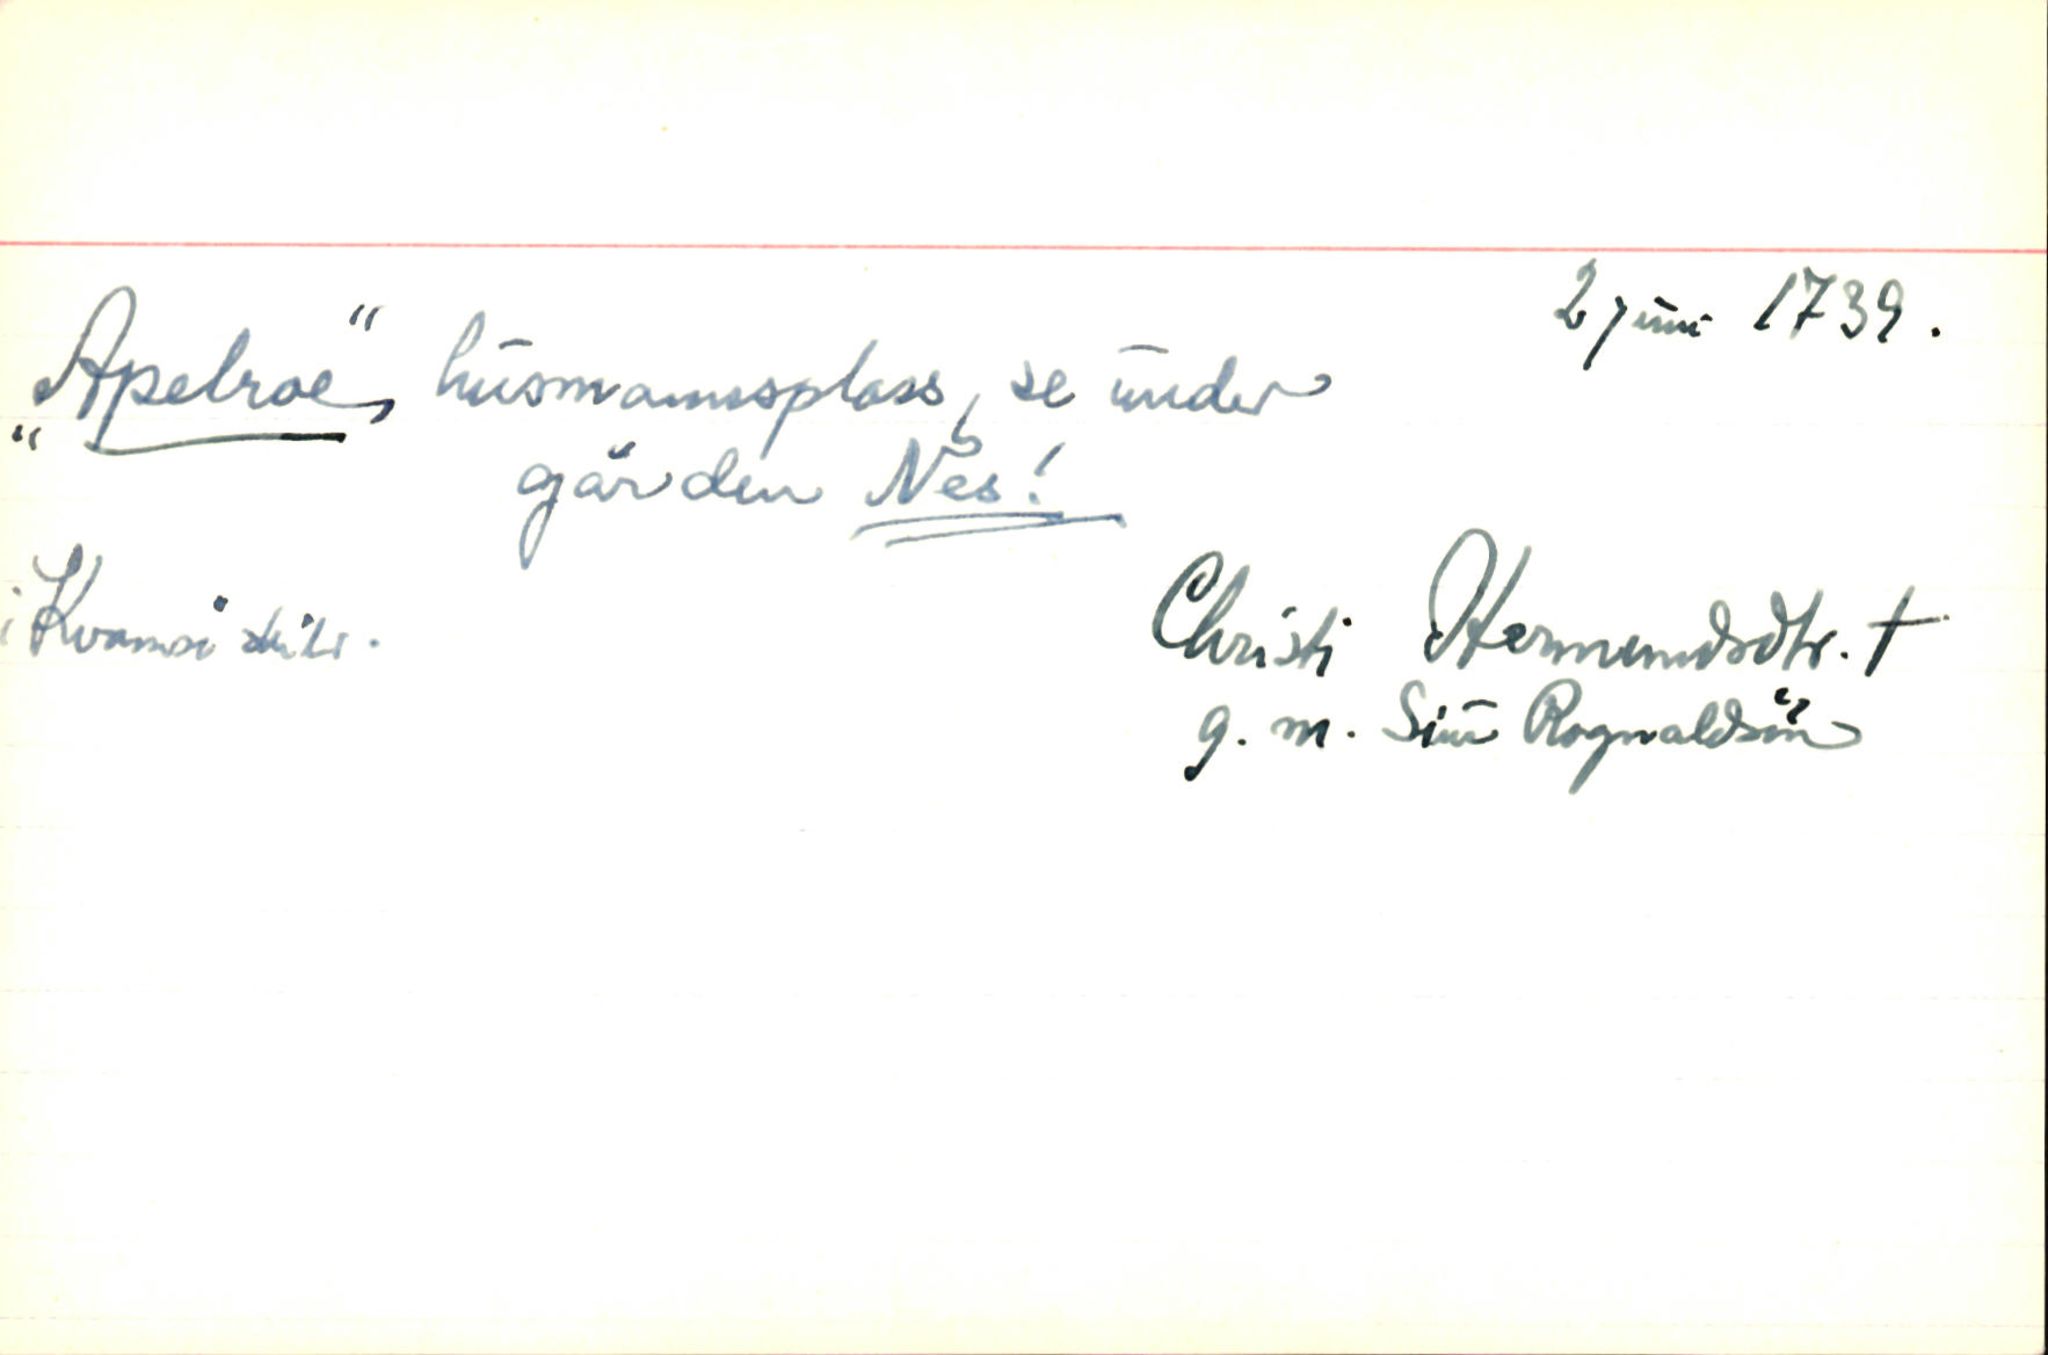 2 juni 1739.
"Apelroe", husmannsplass, se under
gården Nes!
i Kvamsi
Christi Hermundsdtr. †
g. m. Siur Rognaldsön